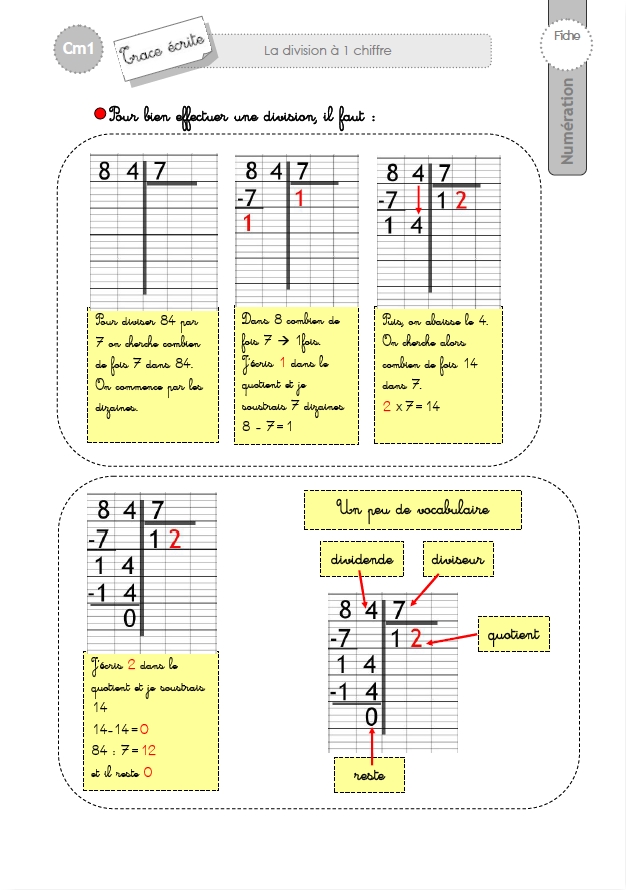 Cm1
Trace écrite
La division à 1 chiffre
Fiche
Numération
Pour bien effectuer une division, il faut :
8 4 7
8 4 7
-7 1
1
8 4 7
-7 1 2
1 4
Pour diviser 84 par
7 on cherche combien
de fois 7 dans 84.
On commence par les
dizaines.
Dans 8 combien de
fois 7 → 1fois.
J'écris 1 dans le
quotient et je
soustrais 7 dizaines
8 - 7 = 1
Puis, on abaisse le 4.
On cherche alors
combien de fois 14
dans 7.
2 x 7 = 14
8 4 7
-7 1 2
1 4
-1 4
0
J'écris 2 dans le
quotient et je soustrais
14
14-14 = 0
84 : 7 = 12
et il reste 0
Un peu de vocabulaire
dividende diviseur
8 4 7
-7 1 2
quotient
1 4
-1 4
0
reste